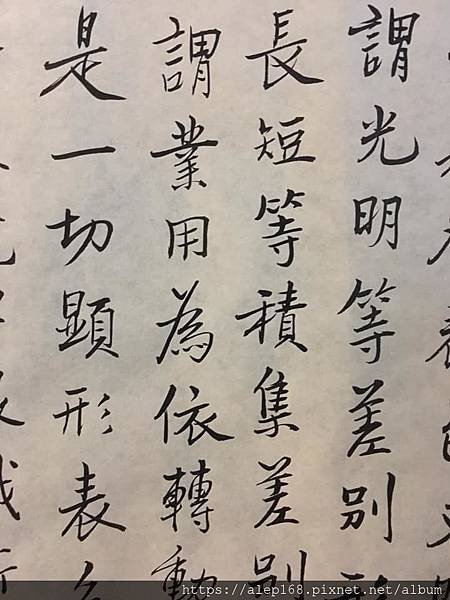 謂光明等差別形
長短等積集差別
謂業用為依轉動
是一切顯形表
https://alep168.pixnet.net/album